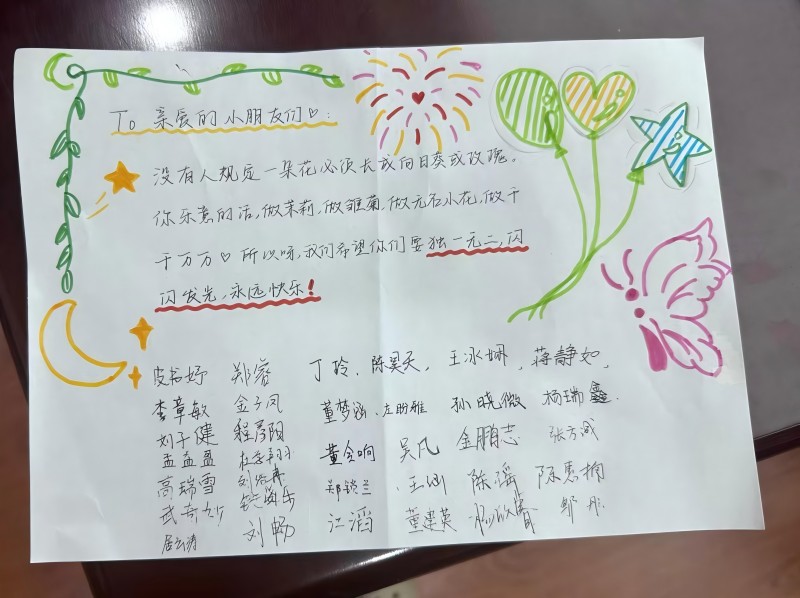 To 亲爱的小朋友们♡:
没有人规定一朵花必须长成向日葵或玫瑰。
你乐意的话,做茉莉,做雏菊,做无名小花,做千
千万万♡ 所以呀,我们希望你们要独一无二,闪
闪发光,永远快乐!
郑睿 丁玲、陈昊天, 王冰姗, 蒋静如,
李章敏 金子凤 董梦涵、左盼雅 孙晓微 杨瑞鑫
刘千健 程彦阳 吴凡 金鹏志
孟孟盈 董会响
高瑞雪 郑锁兰 王灿 陈瑶 陈惠楠
武奇妙
刘畅 江滔 董建英 邹彤